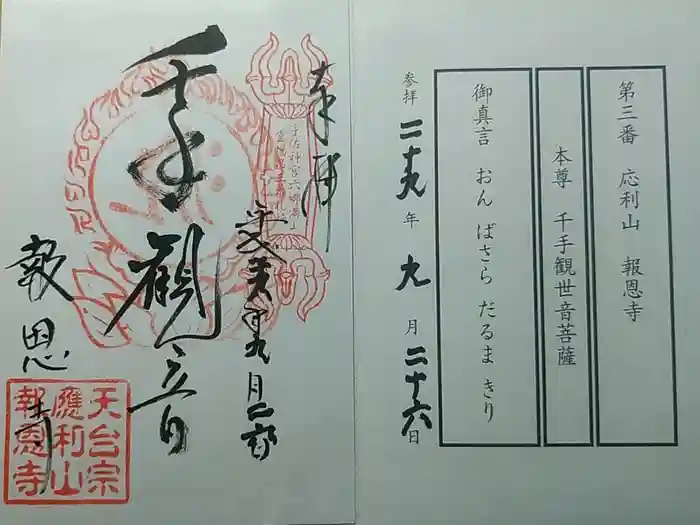 第三番 応利山 報恩寺
本尊 千手観世音菩薩
御真言 おん ばさら だるま きり
参拝 二十九年九月二十六日
奉拝
宇佐神宮六郷満山
千手観音
報恩寺
天台宗
應利山
報恩寺